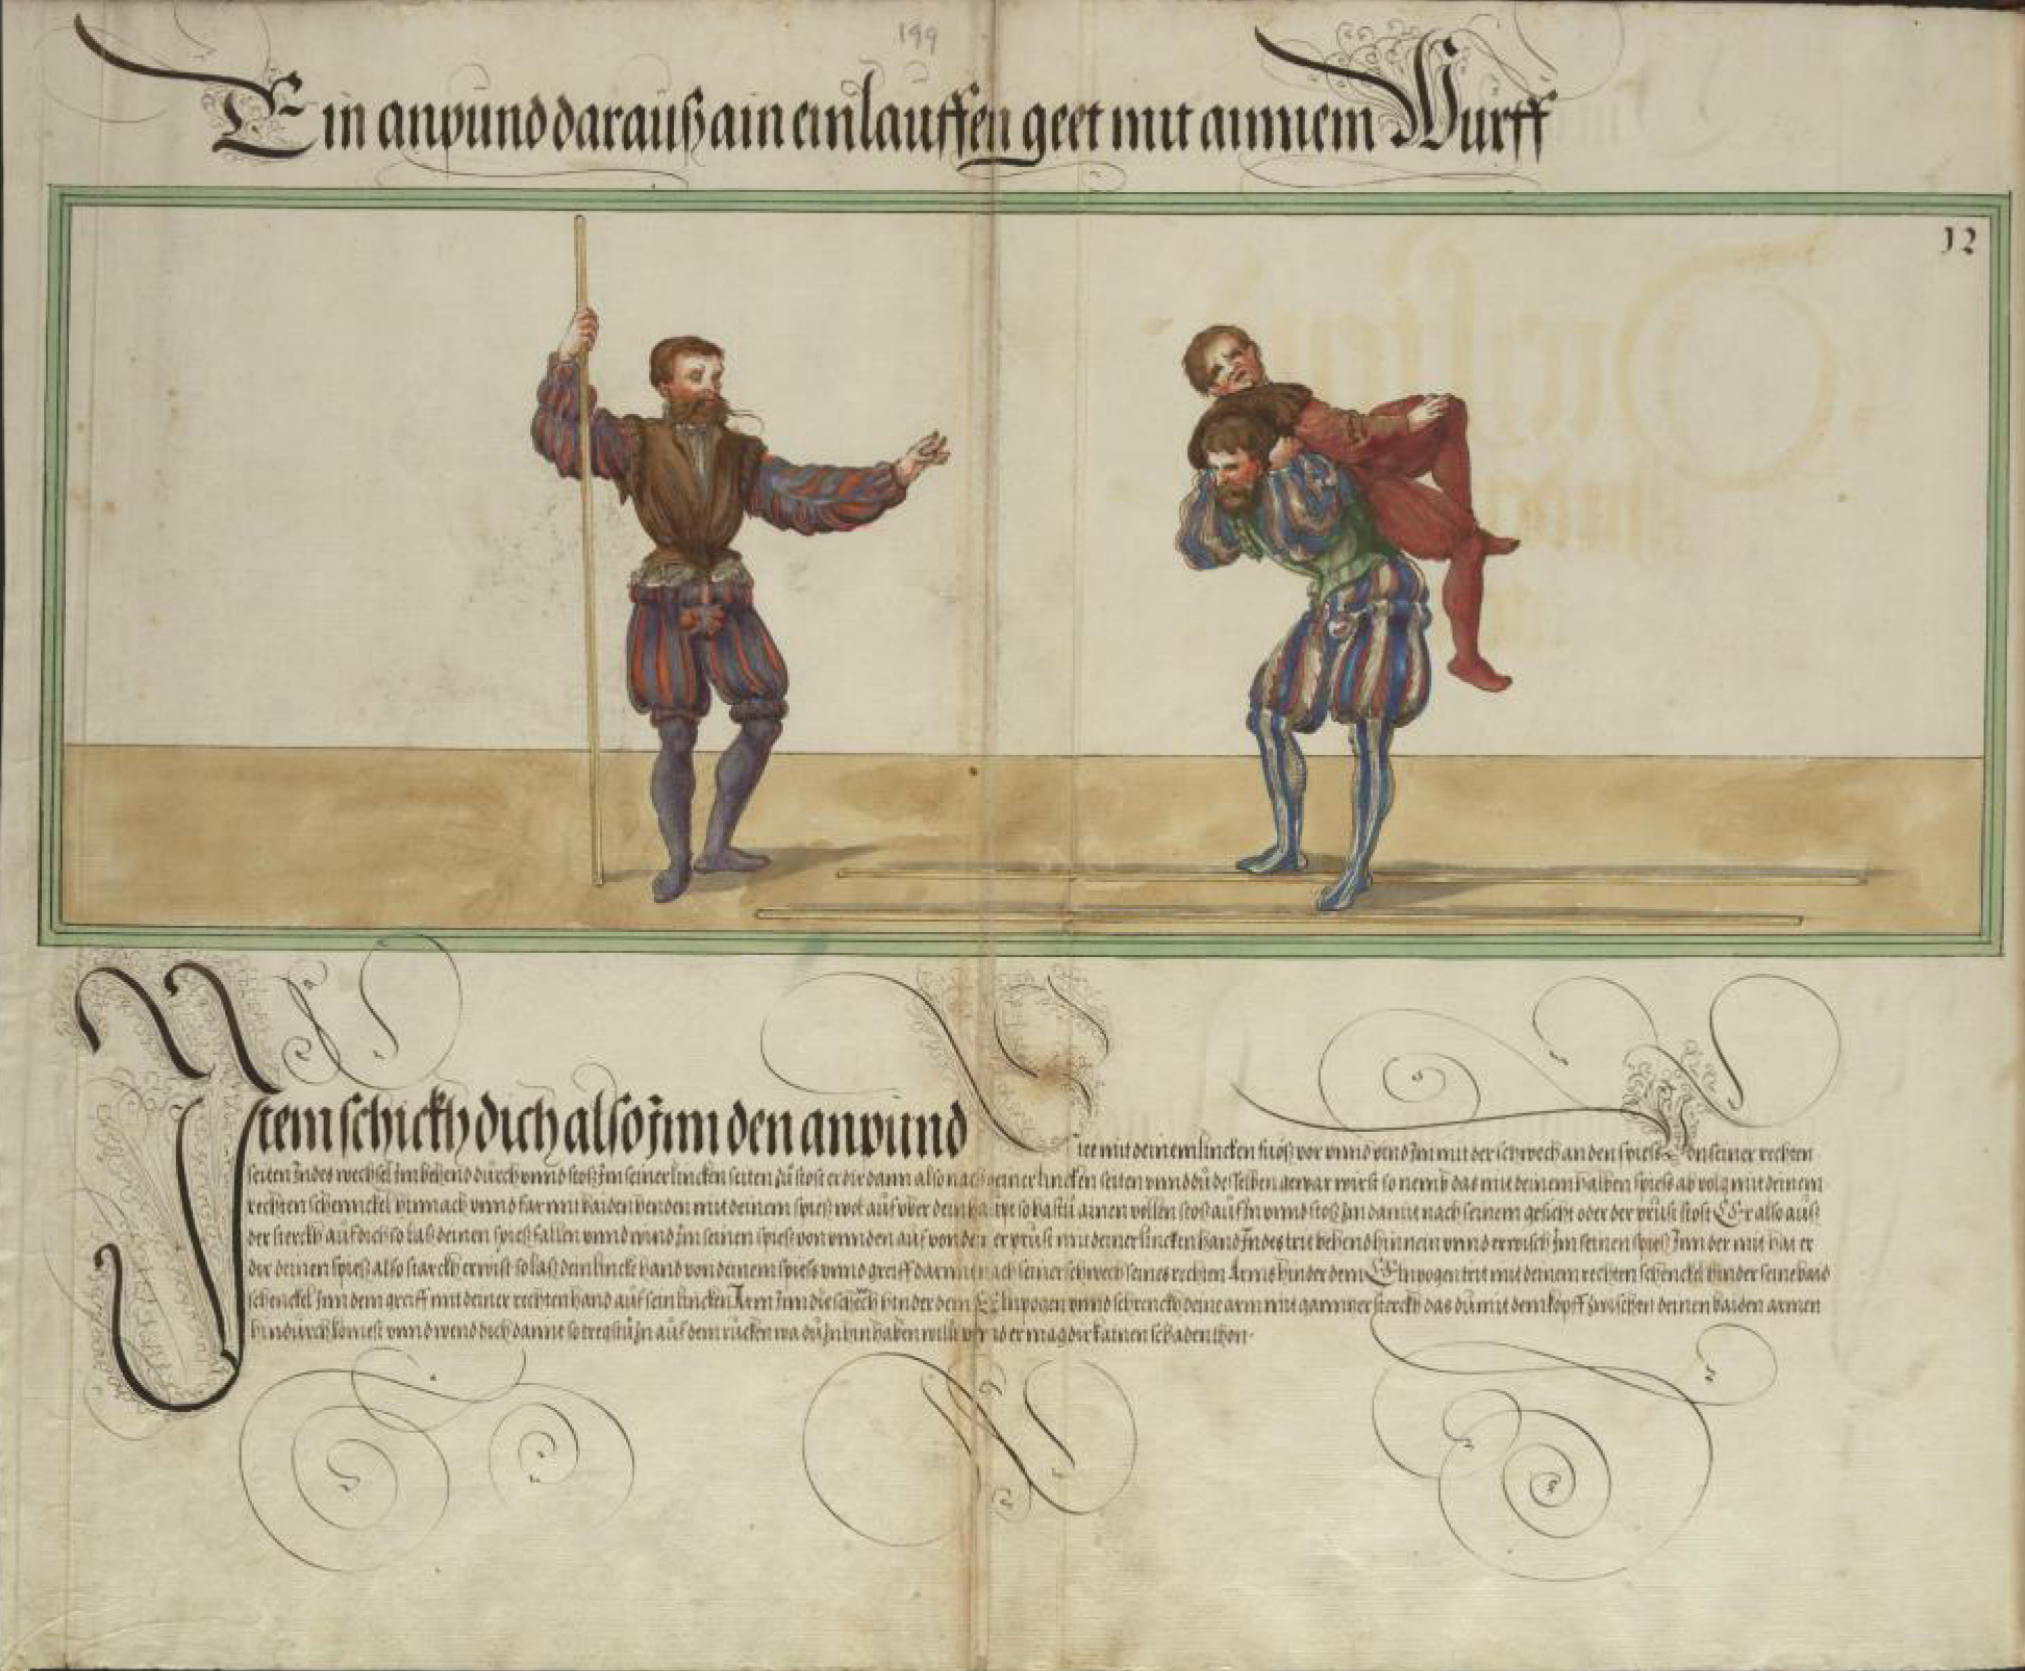 199
Ein anpünd darauß ain einlauffen geet mit ainnem Wurff
12
Item schickh dich also Inn den anpünd
tee mit deinem lincken fuoß vor vnnd pind Im mit der schwech an den spiess Von seiner rechten
seiten Indes wechsel Im behend dürch vnnd stoß Im seiner lincken seiten zü stost er dir dann also nach deiner lincken seiten vnnd dü desselben gewar wirst so nemb das mit deinem halben spiess ab volg mit deinem
rechten schennckel hinnach vnnd far mit baiden henden mit deinem spieß wol auf vber dein haüpt so hastü ainen vollen stoß auf In vnnd stoß Im damit nach seinem gesicht oder der prüst stost Er also auß
der sterckh auf dich so laß deinen spieß fallen vnnd wind Im seinen spieß von vnnden auf von der prüst mit deiner lincken hand Indes trit behend hinnein vnnd erwisch Im seinen spieß Inn der mit hat er
dir deinen spieß also starckh erwist so laß dein lincke hand von deinem spiess vnnd greiff darmit nach seiner schwech seines rechten Arms hinder dem Elnpogen trit mit deinem rechten schenckel hinder seine baid
schenckel Inn dem greiff mit deiner rechten hand auf sein lincken Arm Inn die schwech hinder dem Elnpogen vnnd schrenckh deine arm mit gannzer sterckh das dü mit dem kopff zwischen deinen baiden armen
hindurch komest vnnd wend dich damit so tregstü In auf dem rücken wa dü In hin haben willt vnd er mag dir kainen schaden thon